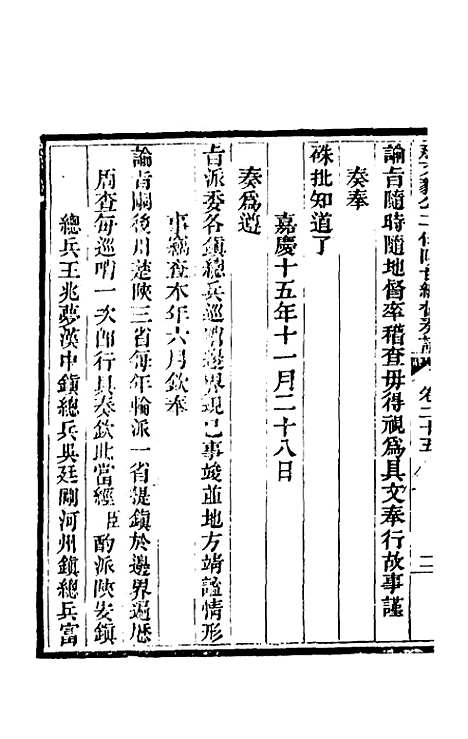 卷二十五
二
諭旨隨時隨地督率稽查毋得視爲具文奉行故事謹
奏奉
硃批知道了
嘉慶十五年十一月二十八日
奏爲遵
旨派委各鎮總兵巡哨邊界現已事竣並地方靖謐情形
事竊查本年六月欽奉
諭旨嗣後川楚陝三省每年輪派一省提鎮於邊界過歷
周查每巡哨一次卽行具奏欽此當經臣酌派陝安鎮
總兵王兆夢漢中鎮總兵吳廷剛河州鎮總兵富